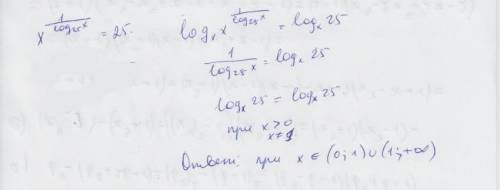 x^{\frac{1}{\log_{25} x}} = 25.
\log_x x^{\frac{1}{\log_{25} x}} = \log_x 25
\frac{1}{\log_{25} x} = \log_x 25
\log_x 25 = \log_x 25
при x > 0
x ≠ 1
Ответ: при x ∈ (0; 1) ∪ (1; +∞)